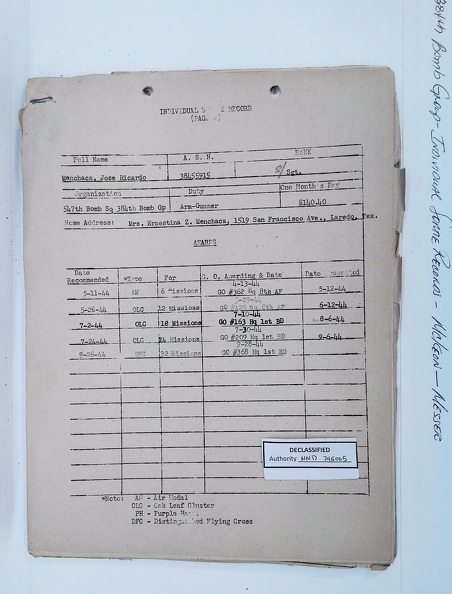 384th Bomb Group - Individual Sortie Records - McKeon — Messer
INDIVIDUAL RECORD
Full Name A. S. N. RANK
Menchaca, Jose Ricardo 38455915 S/ Sgt.
Organization Duty One Month's Pay
547th Bomb Sq 384th Bomb Gp Arm-Gunner $140.40
Home Address: Mrs. Ernestina Z. Menchaca, 1519 San Francisco Ave., Laredo, Tex.
AWARDS
Date Recommended *Type For G. O. Awarding & Date Date
5-11-44 AM 6 Missions GO #362 Hq 8th AF 4-13-44 5-12-44
5-26-44 OLC 12 Missions Hq 8th AF -29-44 6-12-44
7-2-44 OLC 18 Missions 7-10-44 GO #163 Hq 1st BD 8-6-44
7-24-44 OLC 24 Missions 7-30-44 GO #209 Hq 1st BD 9-6-44
9-26-44 DFC 32 Missions 9-28-44 GO #368 Hq 1st BD
DECLASSIFIED
Authority NND 745005
*Note: AM - Air Medal
OLC - Oak Leaf Cluster
PH - Purple
DFC - Distinguished Flying Cross